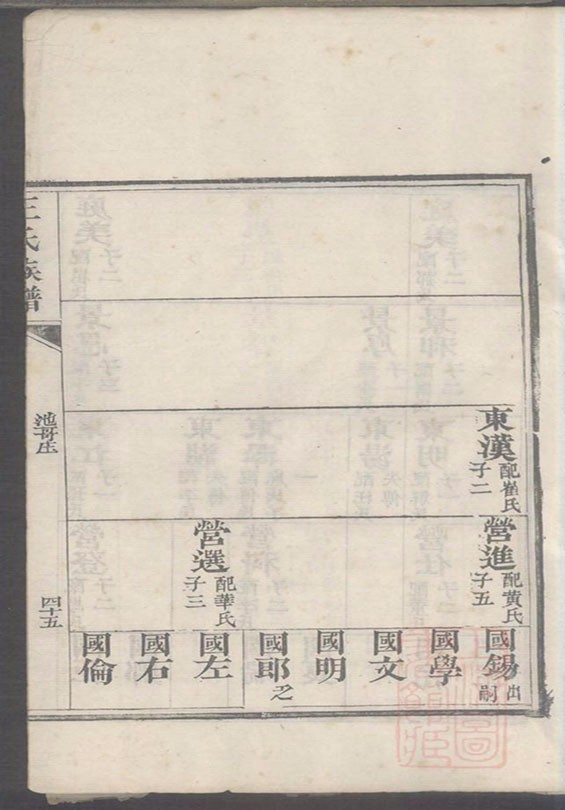 東漢
配崔氏
子二
營進
配黄氏
子五
營選
配華氏
子三
國錫
出
嗣
國學
國文
國明
國耶
之
國左
國右
國倫
王氏族譜
池哥庄
四十五